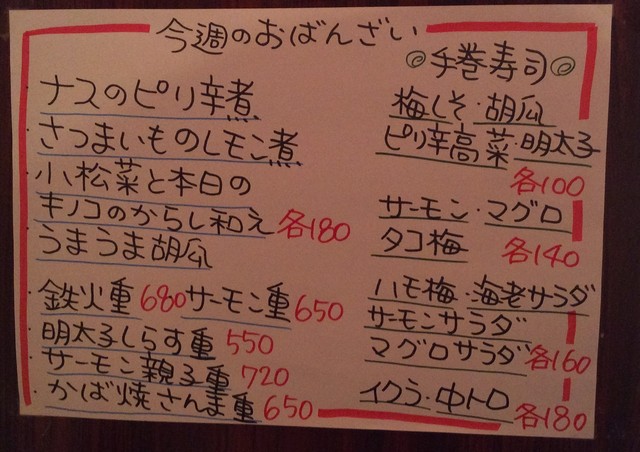 今週のおばんざい
ナスのピリ辛煮
さつまいものレモン煮
小松菜と本日の
キノコのからし和え 各180
うまうま胡瓜
鉄火重 680 サーモン重 650
明太子しらす重 550
サーモン親子重 720
かば焼さんま重 650
◎手巻寿司◎
梅しそ・胡瓜
ピリ辛高菜・明太子
各100
サーモン・マグロ
タコ梅 各140
ハモ梅・海老サラダ
サーモンサラダ
マグロサラダ 各160
イクラ・中トロ 各180